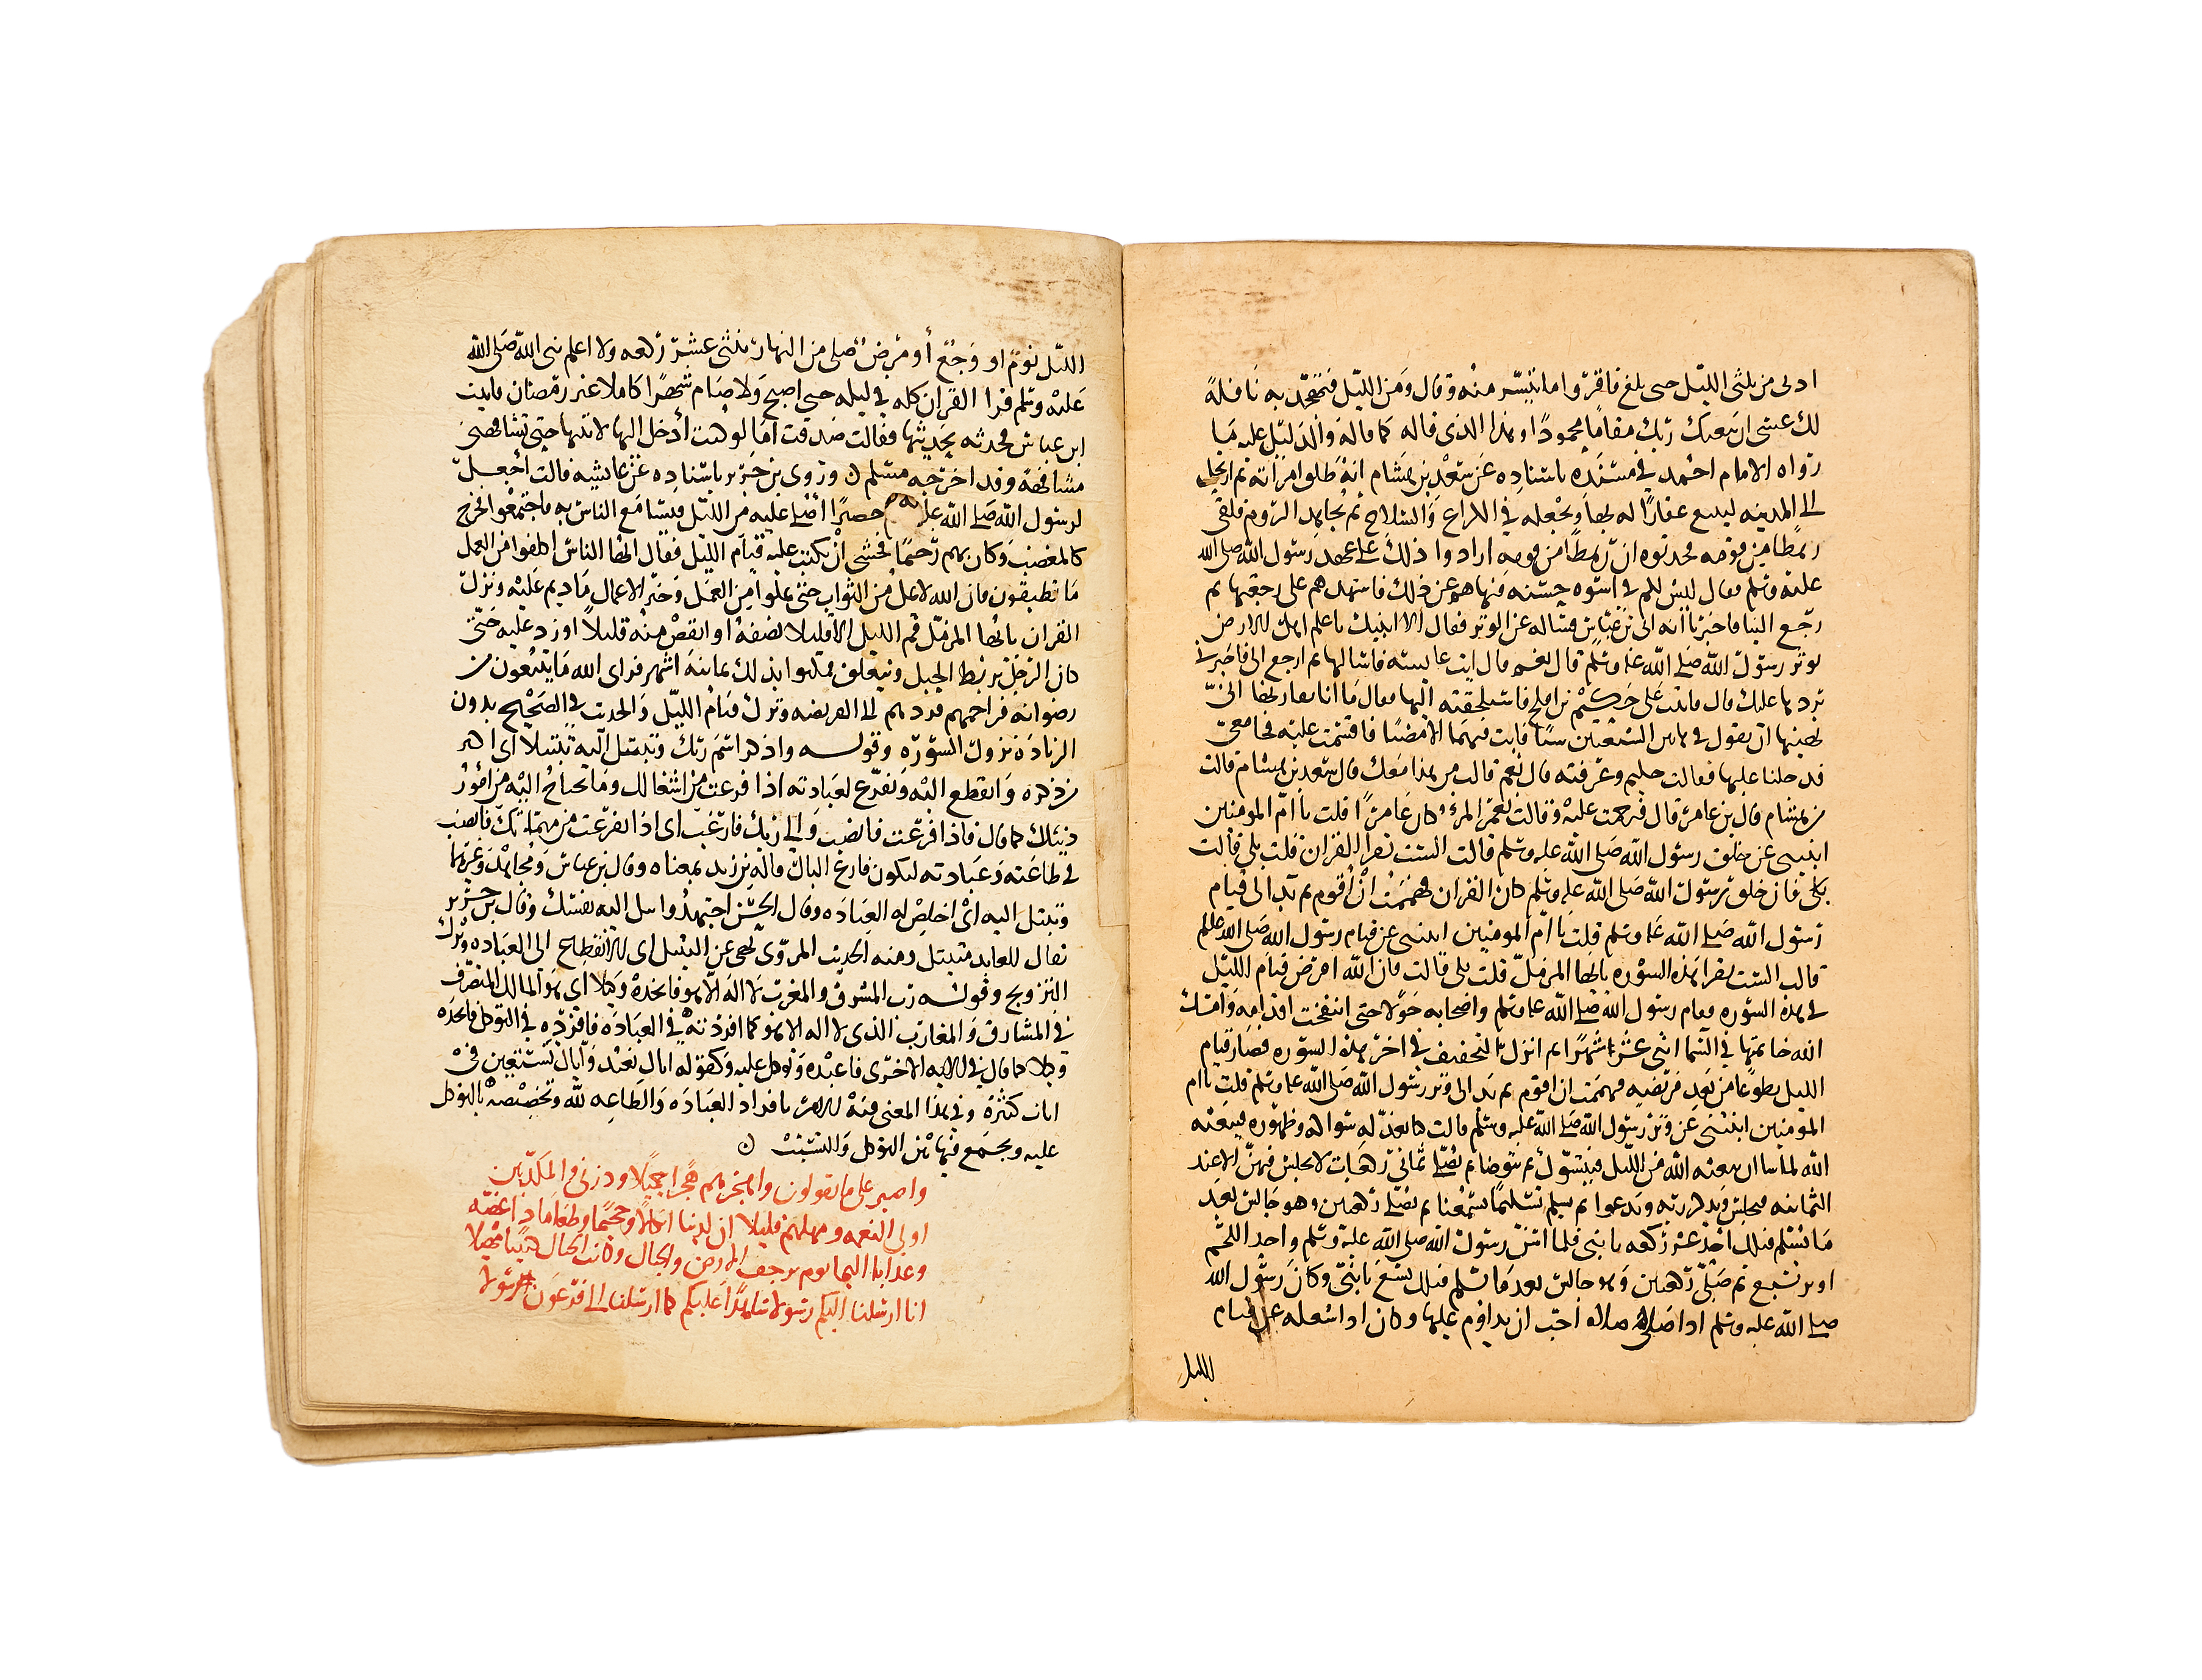 ادنى من ثلثى الليل حتى بلغ فاقرؤا ما تيسر منه وقال ومن الليل فتهجد به نافلة
لك عسى ان يبعثك ربك مقاما محمودا وهذا الذى قاله كما قاله والدليل عليه ما
رواه الامام احمد فى مسنده باسناده عن سعد بن هشام انه طلق امراته ثم ارتحل
الى المدينه ليبيع عقارا له بها ويجعله فى الكراع والسلاح ثم يجاهد الروم فلقى
رهطا من قومه فحدثوه ان رهطا من قومه ارادوا ذلك على عهد رسول الله صلى الله
عليه وسلم فقال اليس لكم فى اسوه حسنه فنهاهم عن ذلك فاشهدهم على رجعتها ثم
رجع الينا فاخبرنا انه اتى بن عباس فساله عن الوتر فقال الا انبيك باعلم اهل الارض
بوتر رسول الله صلى الله عليه وسلم قال نعم قال ايت عايشه فاسالها ثم ارجع الى فاخبرنى
بردها عليك قال فاتيت على حكيم بن افلح فاستلحقته اليها فقال ما انا بقاربها انى
نهيتها ان تقول فى هاتين الشيعتين شيا فابت فيهما الا مضيا فاقسمت عليه فجا معى
فدخلنا عليها فقالت حكيم وعرفته قال نعم قالت من هذا معك قال سعد بن هشام قالت
من هشام قال بن عامر قال فترحمت عليه وقالت نعم المرء كان عامرا قلت يا ام المومنين
انبينى عن خلق رسول الله صلى الله عليه وسلم قالت الست تقرا القران قلت بلى قالت
فان خلق رسول الله صلى الله عليه وسلم كان القران فهممت ان اقوم ثم بدا لى قيام
رسول الله صلى الله عليه وسلم قلت يا ام المومنين انبينى عن قيام رسول الله صلى الله عليه وسلم
قالت الست تقرا هذه السوره يا ايها المزمل قلت بلى قالت فان الله افترض قيام الليل
فى هذه السوره فقام رسول الله صلى الله عليه وسلم واصحابه حولا حتى انتفخت اقدامهم وامسك
الله خاتمتها فى السما اثنى عشر شهرا ثم انزل التخفيف فى اخر هذه السوره فصار قيام
الليل تطوعا من بعد فريضه فهممت ان اقوم ثم بدا لى وتر رسول الله صلى الله عليه وسلم قلت يا ام
المومنين انبئينى عن وتر رسول الله صلى الله عليه وسلم قالت كنا نعد له سواكه وطهوره فيبعثه
الله لما شا ان يبعثه الله من الليل فيتسوك ثم يتوضا ثم يصلى ثمانى ركعات لا يجلس فيهن الا عند
الثامنه فيجلس ويذكر ربه ويدعوا ثم يسلم تسليما يسمعنا ثم يصلى ركعتين وهو جالس بعد
ما يسلم فتلك احد عشر ركعه يا بنى فلما اسن رسول الله صلى الله عليه وسلم واخذ اللحم
اوتر بسبع ثم صلى ركعتين وهو جالس بعد ما سلم فتلك تسع يا بنى وكان رسول الله
صلى الله عليه وسلم اذا صلى صلاه احب ان يداوم عليها وكان اذا شغله عن قيام
الليل
الليل نوم او وجع أو مرض صلى من النهار ثنتى عشر ركعه ولا اعلم نبى الله صلى الله
عليه وسلم قرا القران كله فى ليله حتى اصبح ولا صام شهرا كاملا غير رمضان فاتيت
ابن عباس فحدثه بحديثها فقالت صدقت اما لو كنت أدخل اليها لاتيتها حتى تشافهنى
مشافهة وقد اخرجه مسلم ن وروى بن جرير باسناده عن عايشه قالت اجعل
لرسول الله صلى الله عليه حصيرا أصلى عليه من الليل فتسامع الناس به فاجتمعوا فخرج
كالمغضب وكان بهم رحيما فخشى ان يكتب عليه قيام الليل فقال ايها الناس اكلفوا من العمل
ما تطيقون فان الله لا يمل من الثواب حتى تملوا من العمل وخير الاعمال ما ديم عليه ونزل
القران يا ايها المزمل قم الليل الا قليلا نصفه او انقص منه قليلا او زد عليه حتى
كان الرجل يربط الحبل ويتعلق فمكثوا بذلك ثمانية اشهر فراى الله ما يبتغون من
رضوانه فرحمهم فردهم الى الفريضه وترك قيام الليل والحديث فى الصحيح بدون
الزيادة نزول السوره وقوله واذكر اسم ربك وتبتل اليه تبتيلا اى اكثر
من ذكره وانقطع اليه وتفرغ لعبادته اذا فرغت من اشغالك وما تحتاج اليه من امور
دنياك كما قال فاذا فرغت فانصب والى ربك فارغب اى اذا تفرغت من مهماتك فانصب
فى طاعته وعبادته لتكون فارغ البال قاله بن زيد بمعناه وقال بن عباس ومجاهد وغيرهما
وتبتل اليه اى اخلص له العباده وقال الحسن اجتهد وابتل اليه نفسك وقال بن جرير
يقال للعابد متبتل ومنه الحديث المروى نهى عن التبتل اى الانقطاع الى العباده وترك
التزويج وقوله رب المشرق والمغرب لا اله الا هو فاتخذه وكيلا اى هو المالك المتصرف
فى المشارق والمغارب الذى لا اله الا هو كما افردته فى العباده فافرده فى التوكل فاتخذه
وكيلا كما قال فى الايه الاخرى فاعبده وتوكل عليه وكقوله اياك نعبد واياك نستعين فى
ايات كثيرة وفى هذا المعنى فيه الامر بافراد العباده والطاعه لله وتخصيصه بالتوكل
عليه ويجمع فيها بين التوكل والتشبث ن
واصبر على ما يقولون واهجرهم هجرا جميلا وذرنى والمكذبين
اولى النعمه ومهلهم قليلا ان لدينا انكالا وجحيما وطعاما ذا غصه
وعذابا اليما يوم ترجف الارض والجبال وكانت الجبال كثيبا مهيلا
انا ارسلنا اليكم رسولا شاهدا عليكم كما ارسلنا الى فرعون رسولا